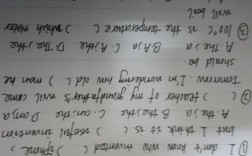 ① I don't know who invented ( ) iphone,
but I think it is ( ) useful invention
A the, a B the, the C an, the D an, a
② ( ) teacher of my grandfather's will come
tomorrow. I'm wondering how old ( ) man
should be
A The, a B A, a C A, the D The, the
③ 100°C is the temperature ( ) which water
will boil.